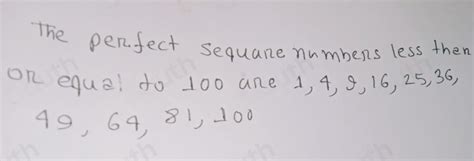 The perfect sequare numbers less then
or equal to 100 are 1, 4, 9, 16, 25, 36,
49, 64, 81, 100